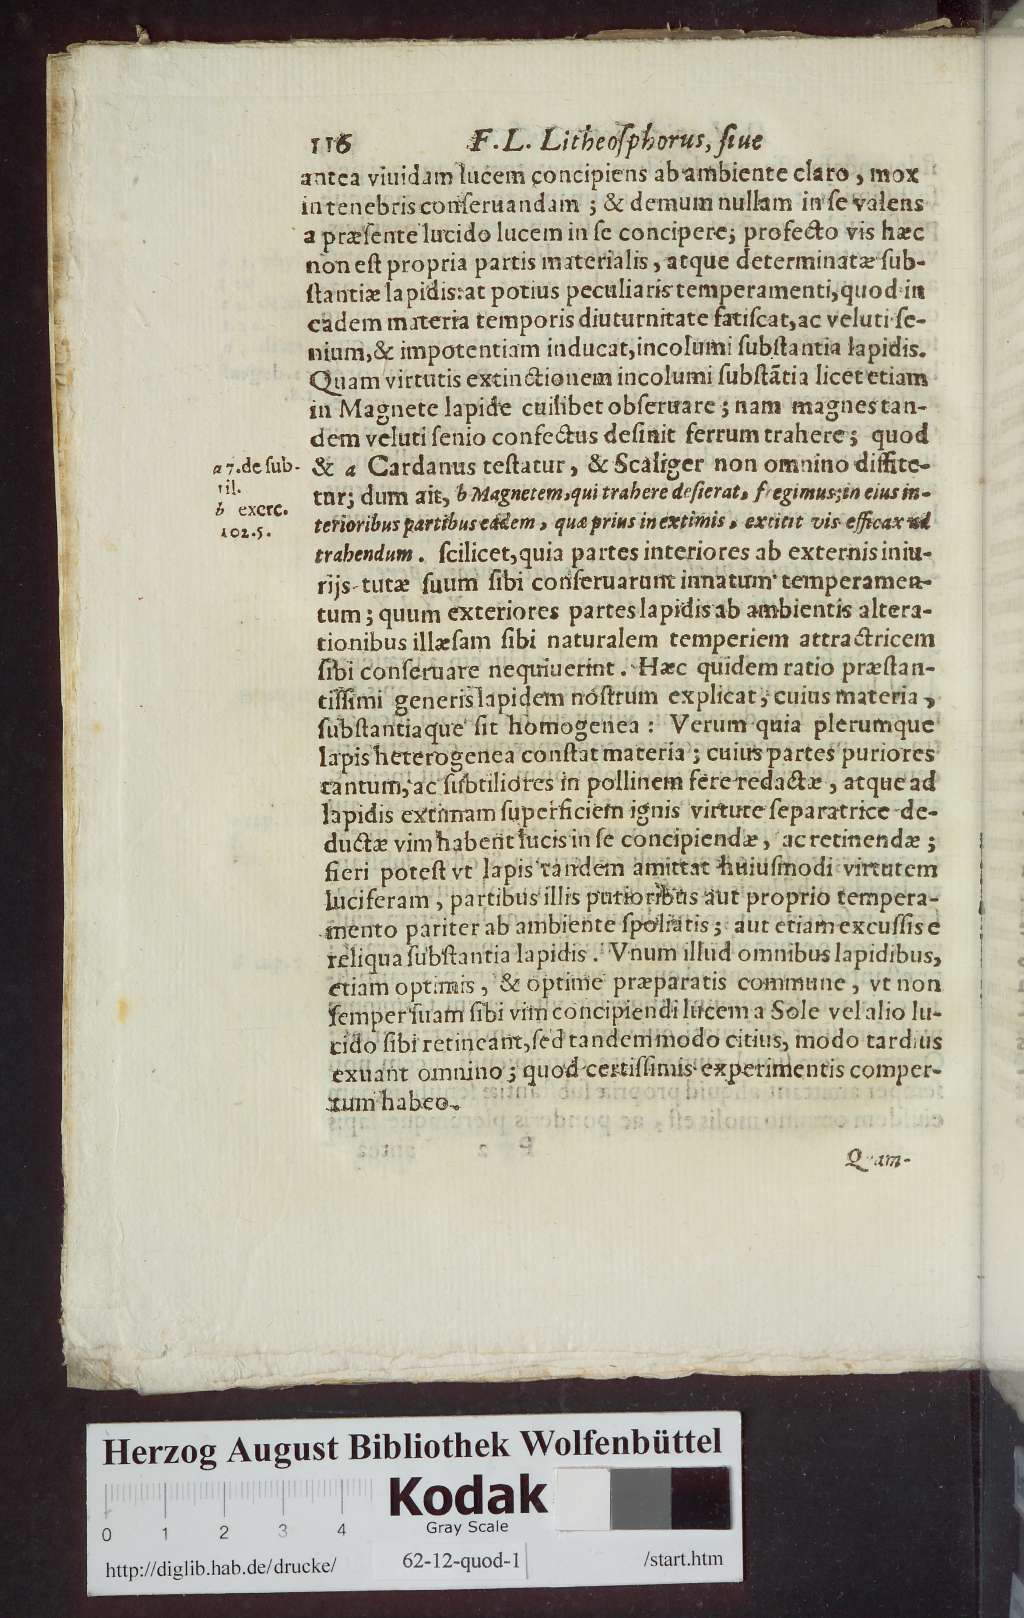 116 F. L. Litheoſphorus, ſiue
antea viuidam lucem concipiens ab ambiente claro, mox
in tenebris conſeruandam; & demum nullam in ſe valens
a præſente lucido lucem in ſe concipere; profecto vis hæc
non eſt propria partis materialis, atque determinatæ ſub-
ſtantiæ lapidis: at potius peculiaris temperamenti, quod in
eadem materia temporis diuturnitate fatiſcat, ac veluti ſe-
nium, & impotentiam inducat, incolumi ſubſtantia lapidis.
Quam virtutis extinctionem incolumi ſubſtãtia licet etiam
in Magnete lapide cuilibet obſeruare; nam magnes tan-
dem veluti ſenio confectus deſinit ferrum trahere; quod
& a Cardanus teſtatur, & Scaliger non omnino diffite-
tur; dum ait, b Magnetem, qui trahere deſierat, fregimus; in eius in-
terioribus partibus eadem, quæ prius in extimis, extitit vis efficax ad
trahendum. ſcilicet, quia partes interiores ab externis iniu-
rijs tutæ ſuum ſibi conſeruarunt innatum temperamen-
tum; quum exteriores partes lapidis ab ambientis altera-
tionibus illæſam ſibi naturalem temperiem attractricem
ſibi conſeruare nequiuerint. Hæc quidem ratio præſtan-
tiſſimi generis lapidem noſtrum explicat, cuius materia,
ſubſtantiaque ſit homogenea: Verum quia plerumque
lapis heterogenea conſtat materia; cuius partes puriores
tantum, ac ſubtiliores in pollinem fere redactæ, atque ad
lapidis extimam ſuperficiem ignis virtute ſeparatrice de-
ductæ vim habent lucis in ſe concipiendæ, ac retinendæ;
fieri poteſt vt lapis tandem amittat huiuſmodi virtutem
luciferam, partibus illis purioribus aut proprio tempera-
mento pariter ab ambiente ſpoliatis; aut etiam excuſſis e
reliqua ſubſtantia lapidis. Vnum illud omnibus lapidibus,
etiam optimis, & optime præparatis commune, vt non
ſemper ſuam ſibi vim concipiendi lucem a Sole vel alio lu-
cido ſibi retineant, ſed tandem modo citius, modo tardius
exuant omnino; quod certiſſimis experimentis comper-
tum habeo.
Quam-
a 7. de ſub-
til.
b exerc.
102. 5.
Herzog August Bibliothek Wolfenbüttel
0 1 2 3 4
Kodak
Gray Scale
http://diglib.hab.de/drucke/ 62-12-quod-1 /start.htm